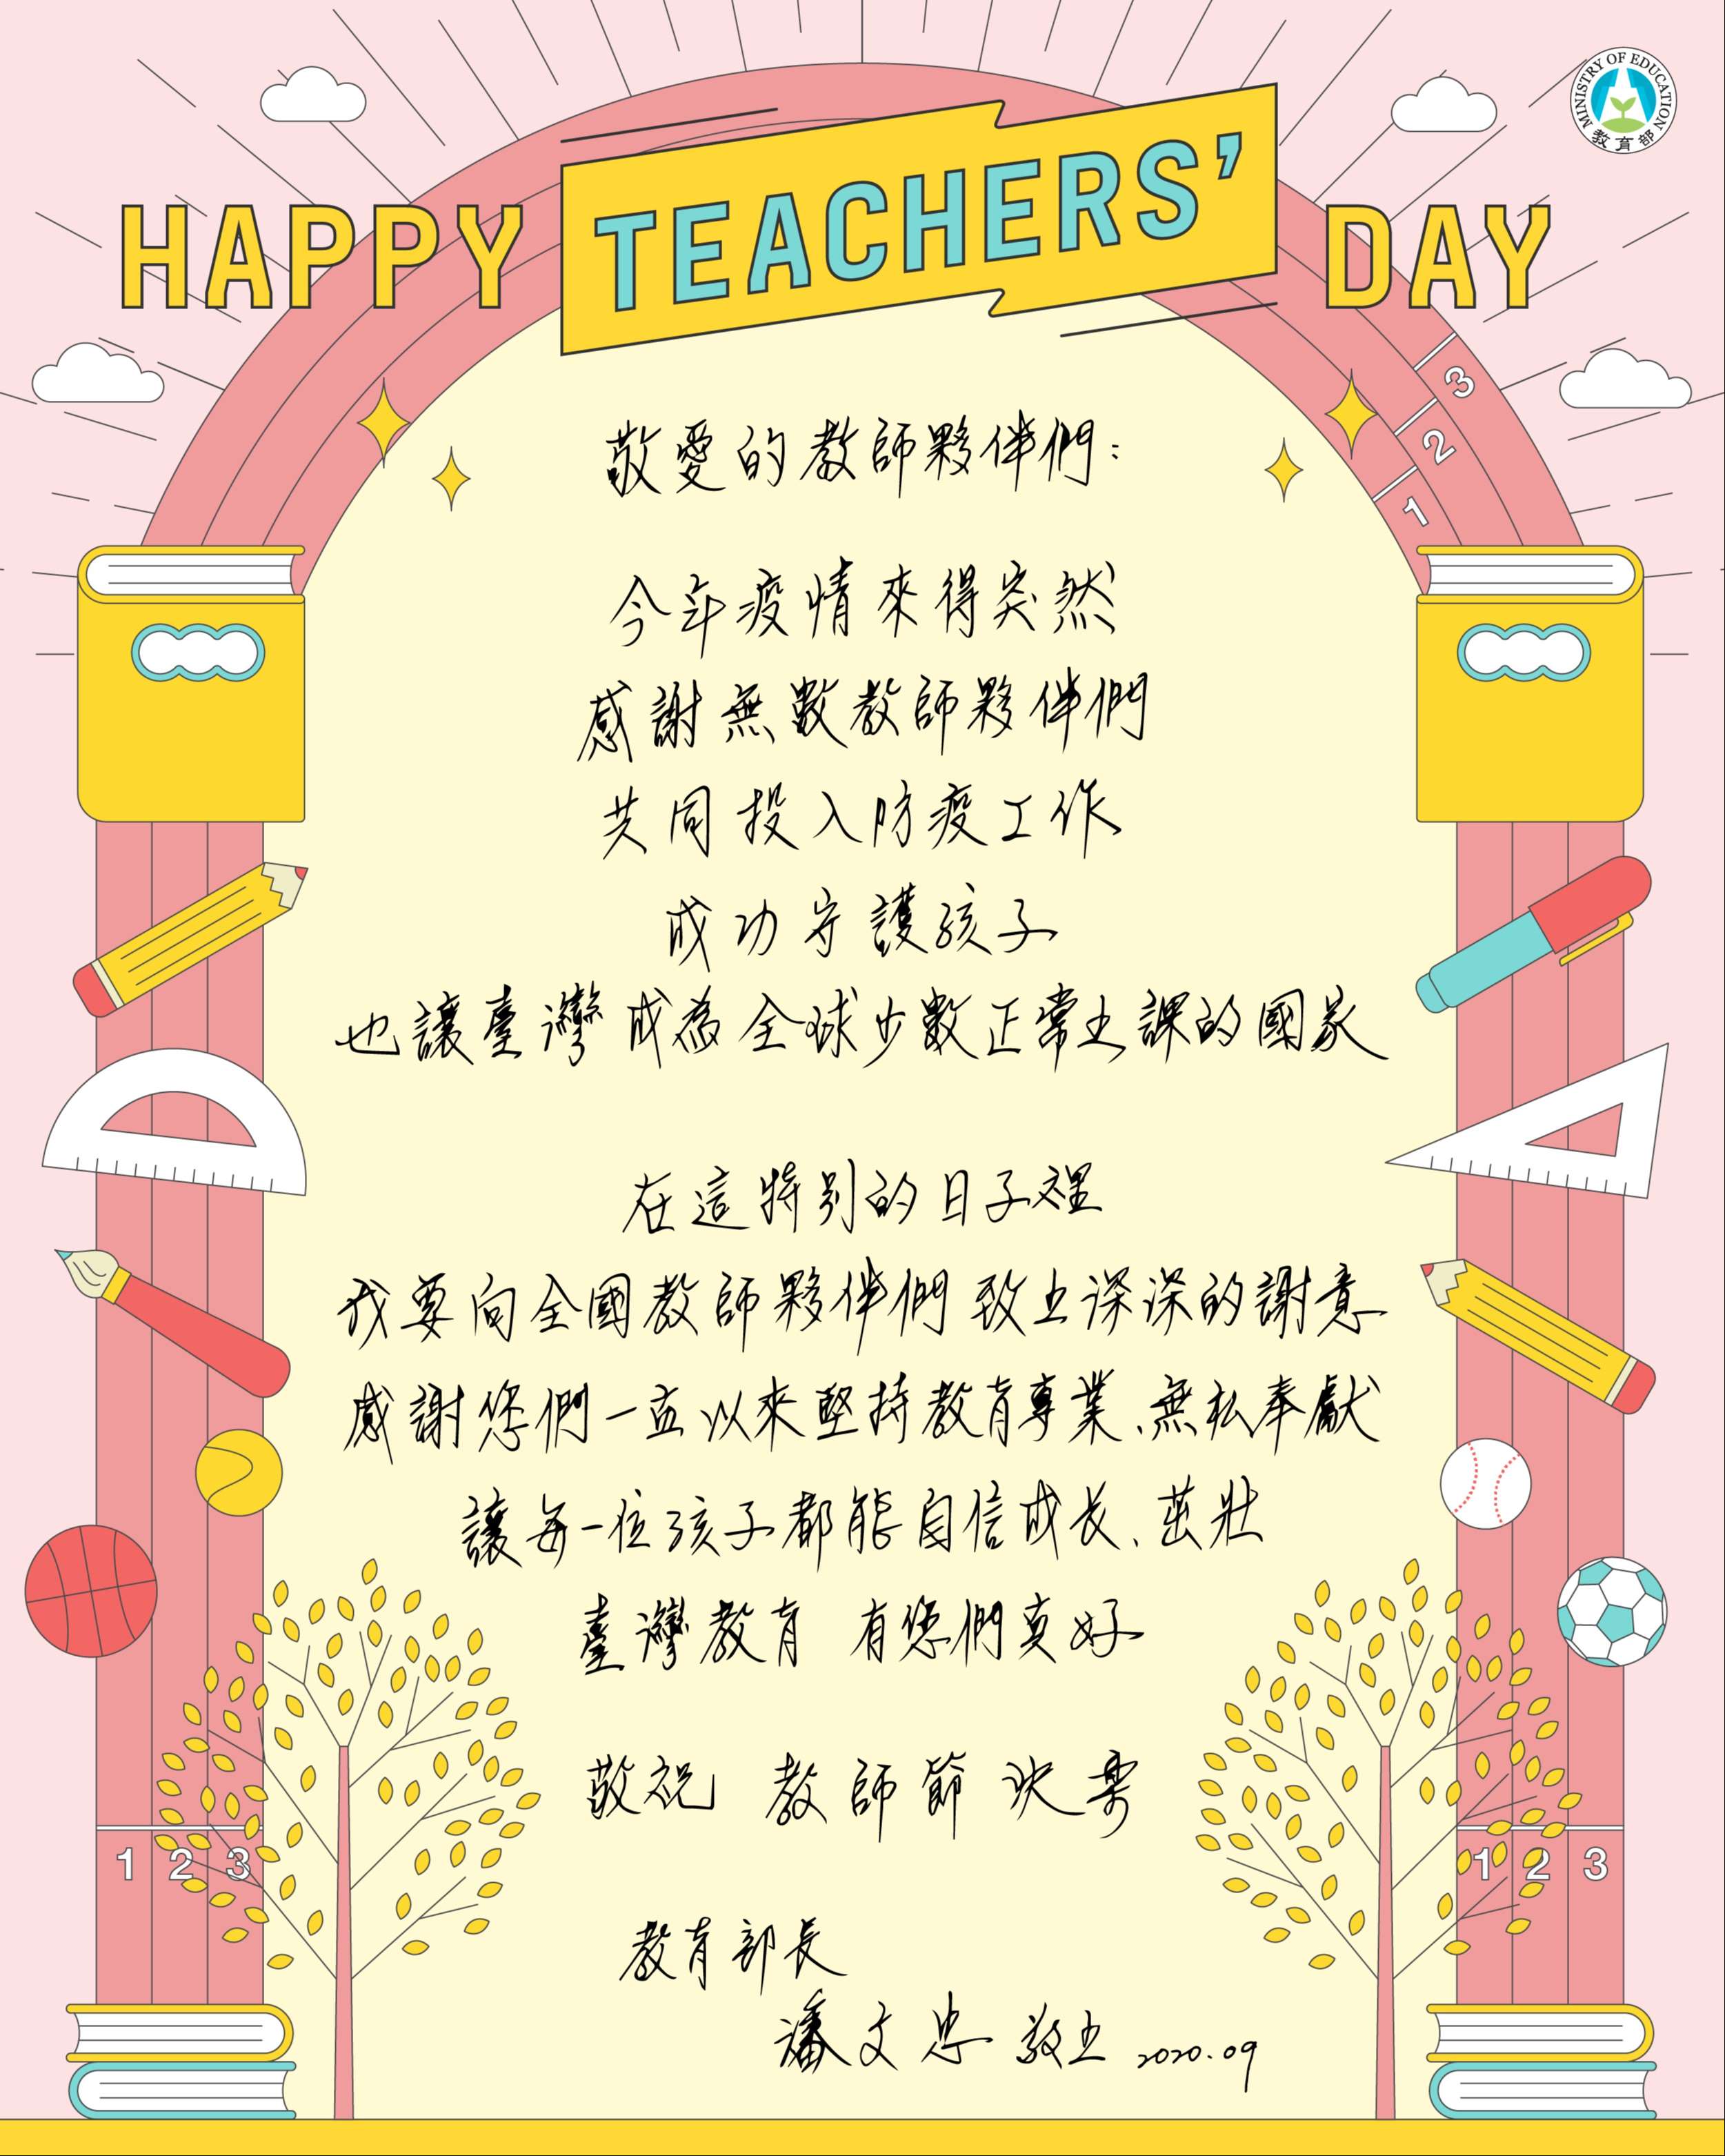 MINISTRY OF EDUCATION
教育部
HAPPY TEACHERS’ DAY
3
2
1
敬愛的教師夥伴們：
今年疫情來得突然
感謝無數教師夥伴們
共同投入防疫工作
成功守護孩子
也讓臺灣成為全球少數正常上課的國家
在這特別的日子裡
我要向全國教師夥伴們 致上深深的謝意
感謝您們一直以來堅持教育專業、無私奉獻
讓每一位孩子都能自信成長、茁壯
臺灣教育 有您們真好
敬祝 教師節 快樂
1 2 3
1 2 3
教育部長
潘文忠 敬上 2020.09